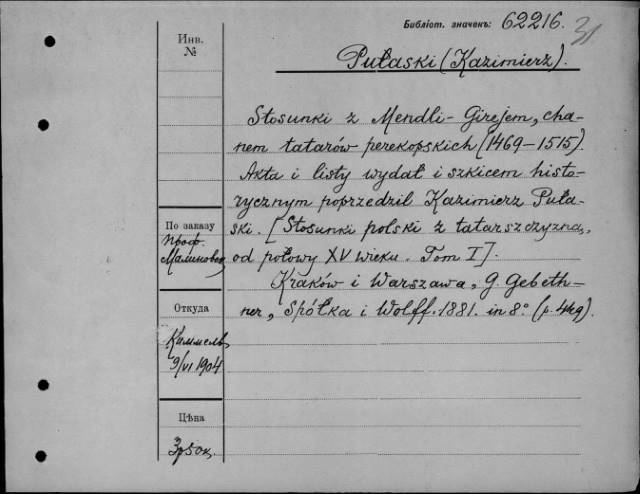 Библіот. значекъ: 62216. 31
Инв.
№
Pułaski (Kazimierz).
Stosunki z Mendli-Girejem, cha-
nem tatarów perekopskich (1469–1515).
Akta i listy wydał i szkicem histo-
rycznym poprzedził Kazimierz Puła-
ski. [Stosunki polski z tatarszczyzną,
od połowy XV wieku. Tom I].
Kraków i Warszawa, G. Gebeth-
ner, Spółka i Wolff. 1881. in 8°
По заказу
проф.
Малиновск
Откуда
Киммель
9/VI 1904
Цѣна
3р 50к.